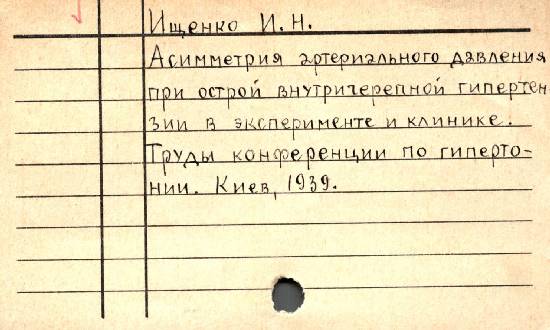 Ищенко И. Н.
Асимметрия артериального давления
при острой внутричерепной гипертен-
зии в эксперименте и клинике.
Труды конференции по гиперто-
нии. Киев, 1939.